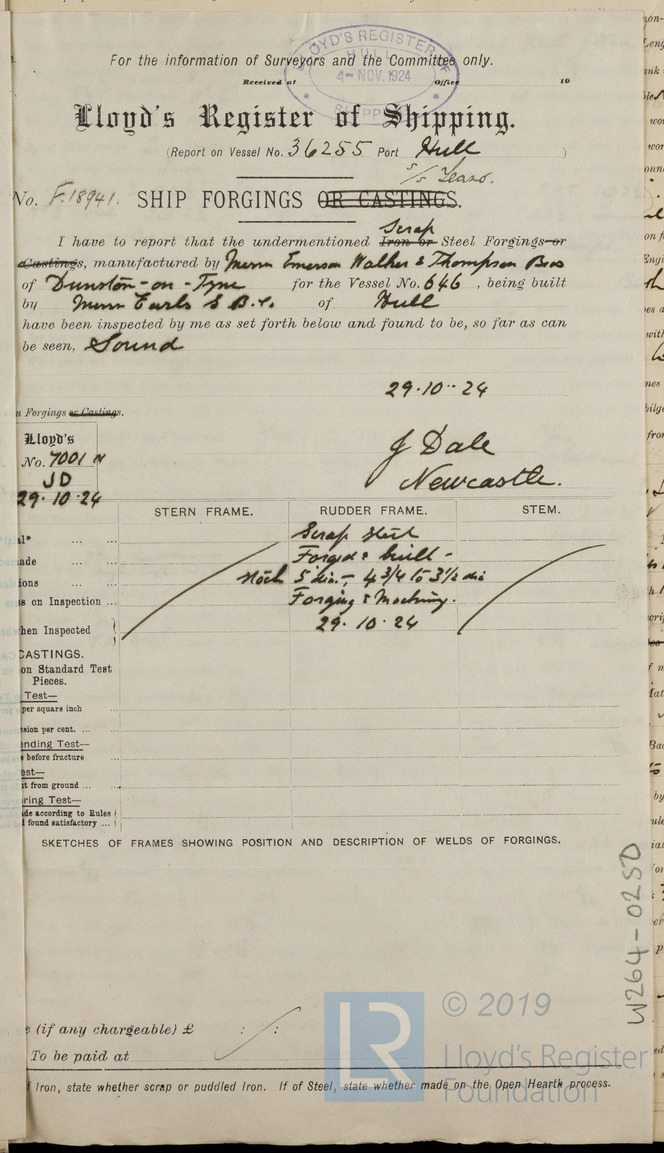 LLOYD'S REGISTER OF
HULL
4-NOV.1924
SHIPPING
For the information of Surveyors and the Committee only.
Received at Office 19
Lloyd's Register of Shipping.
(Report on Vessel No. 36255 Port Hull )
S/S
No. F.18941. SHIP FORGINGS OR CASTINGS.
Scrap
I have to report that the undermentioned Iron or Steel Forgings or
Castings, manufactured by Messrs Emerson Walker & Thompson Bros
of Dunston-on-Tyne for the Vessel No. 646, being built
by Messrs Earle's S.B.Co. of Hull
have been inspected by me as set forth below and found to be, so far as can
be seen, Sound
29.10.24
n Forgings or Castings.
Lloyd's
No. 7001 N
JD
29.10.24
J Dale
Newcastle.
STERN FRAME. RUDDER FRAME. STEM.
al* ... ... Scrap Steel
ade ... ... Forged & built -
ions ... Stock 5 dia -, 4 3/4 to 3 1/2 dia
s on Inspection ... Forging & Maching.
hen Inspected 29.10.24
CASTINGS.
on Standard Test
Pieces.
Test—
per square inch ...
sion per cent. ... ...
ending Test—
before fracture ...
est—
t from ground ... ...
ring Test—
de according to Rules
found satisfactory ...
SKETCHES OF FRAMES SHOWING POSITION AND DESCRIPTION OF WELDS OF FORGINGS.
W264-0250
e (if any chargeable) £ : :
To be paid at
f Iron, state whether scrap or puddled Iron. If of Steel, state whether made on the Open Hearth process.
LR
© 2019
Lloyd's Register
Foundation